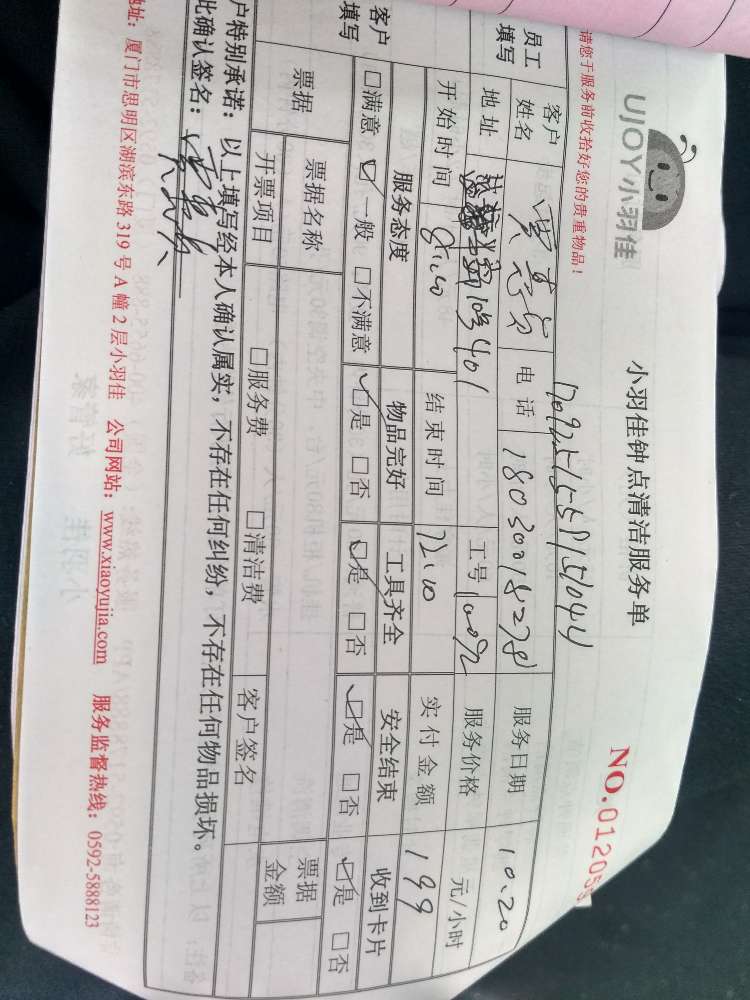 UJOY小羽佳
小羽佳钟点清洁服务单
NO.01205
请您于服务前收拾好您的贵重物品!
员工填写 客户姓名 电话 18030018278 服务日期 10.20
地址 401 工号 服务价格 元/小时
开始时间 结束时间 12:10 实付金额 199
客户填写 服务态度 物品完好 工具齐全 安全结束 收到卡片
□满意 ☑一般 □不满意 ☑是 □否 ☑是 □否 ☑是 □否 ☑是 □否
票据 票据名称 客户签名 票据金额
开票项目 □服务费 □清洁费
户特别承诺:以上填写经本人确认属实,不存在任何纠纷,不存在任何物品损坏。
此确认签名:
址:厦门市思明区湖滨东路 319 号 A 幢 2 层小羽佳 公司网站:www.xiaoyujia.com 服务监督热线:0592-5888123